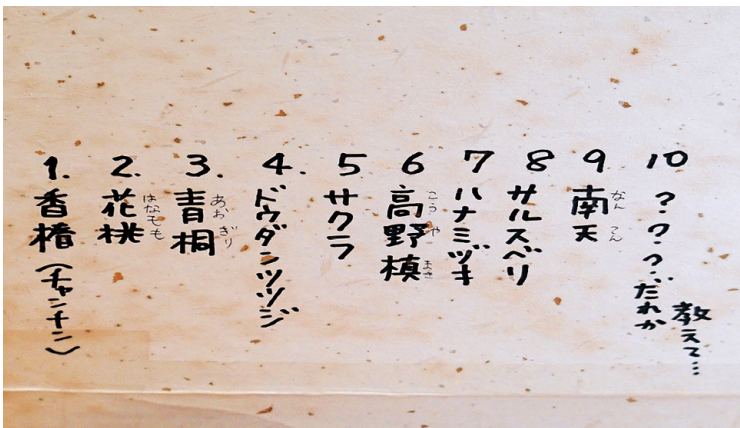 1. 香椿（チャンチン）
2. 花桃
はなもも
3. 青桐
あおぎり
4. ドウダンツツジ
5 サクラ
6 高野槙
こうやまき
7 ハナミヅキ
8 サルスベリ
9 南天
なんてん
10 ???…だれか
教えて…